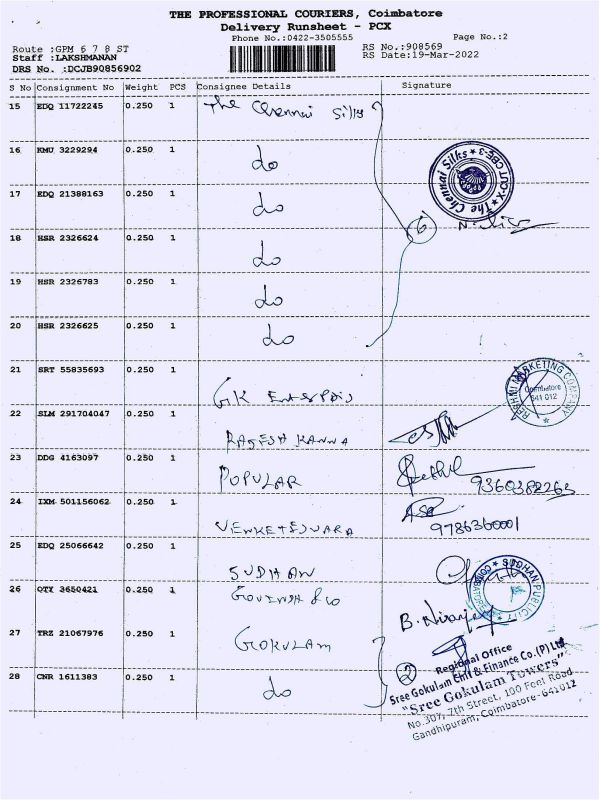 THE PROFESSIONAL COURIERS, Coimbatore
Delivery Runsheet - PCX
Phone No.:0422-3505555
Page No.:2
Route :GPM 6 7 8 ST
RS No.:908569
Staff :LAKSHMANAN
RS Date:19-Mar-2022
DRS No. :DCJB90856902
S No Consignment No Weight PCS Consignee Details Signature
15 EDQ 11722245 0.250 1 The Chennai Silks
16 KMU 3229294 0.250 1 do
The Chennai Silks
17 EDQ 21388163 0.250 1 do
6
18 HSR 2326624 0.250 1 do
19 HSR 2326783 0.250 1 do
20 HSR 2326625 0.250 1 do
21 SRT 55835693 0.250 1 GK
RESHMI MARKETING COMPANY
Coimbatore
641 012
22 SLM 291704047 0.250 1 RAJESH KANNA
23 DDG 4163097 0.250 1 POPULAR
9360382263
24 IXM 501156062 0.250 1 VENKETESWARA
9786360001
25 EDQ 25066642 0.250 1 SUDHAN
SUDHAN PUBLICITY COIMBATORE
26 QTY 3650421 0.250 1 GOVINDA & CO
27 TRZ 21067976 0.250 1 GOKULAM
28 CNR 1611383 0.250 1 do
2
Regional Office
Sree Gokulam Chit & Finance Co.(P) Ltd
"Sree Gokulam Towers"
No.307, 7th Street, 100 Feet Road
Gandhipuram, Coimbatore-641012